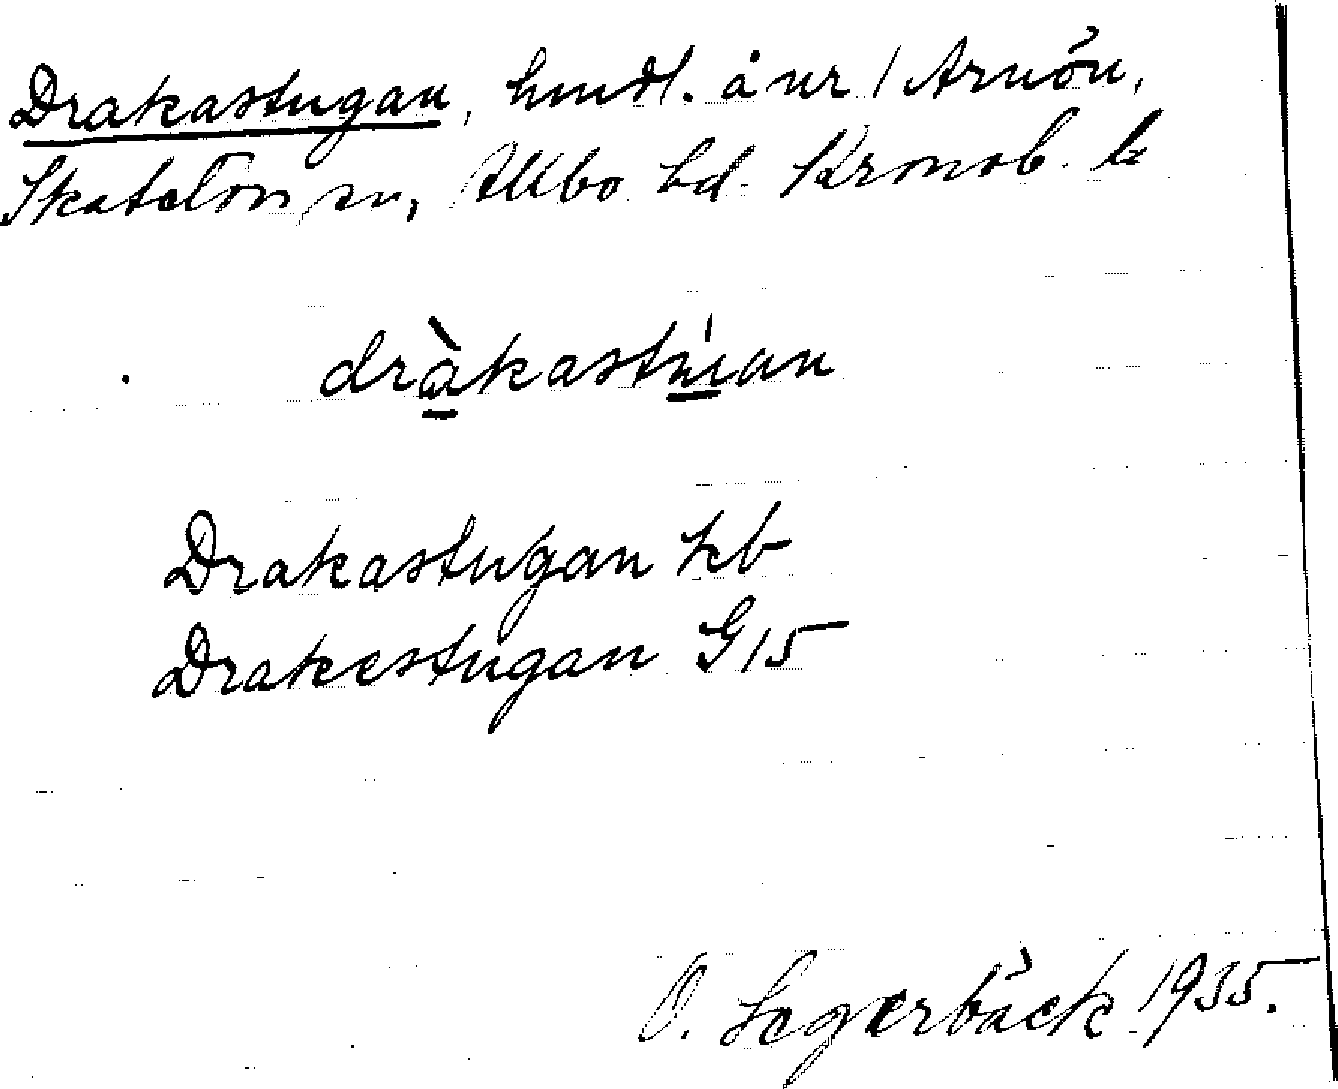 Drakastugan, hmdl. å nr 1 Arnön,
Skatelövs sn, Allbo hd. Kronob. l.
dràkastúan
Drakastugan kb
Drakestugan G15
O. Segerbäck 1935.